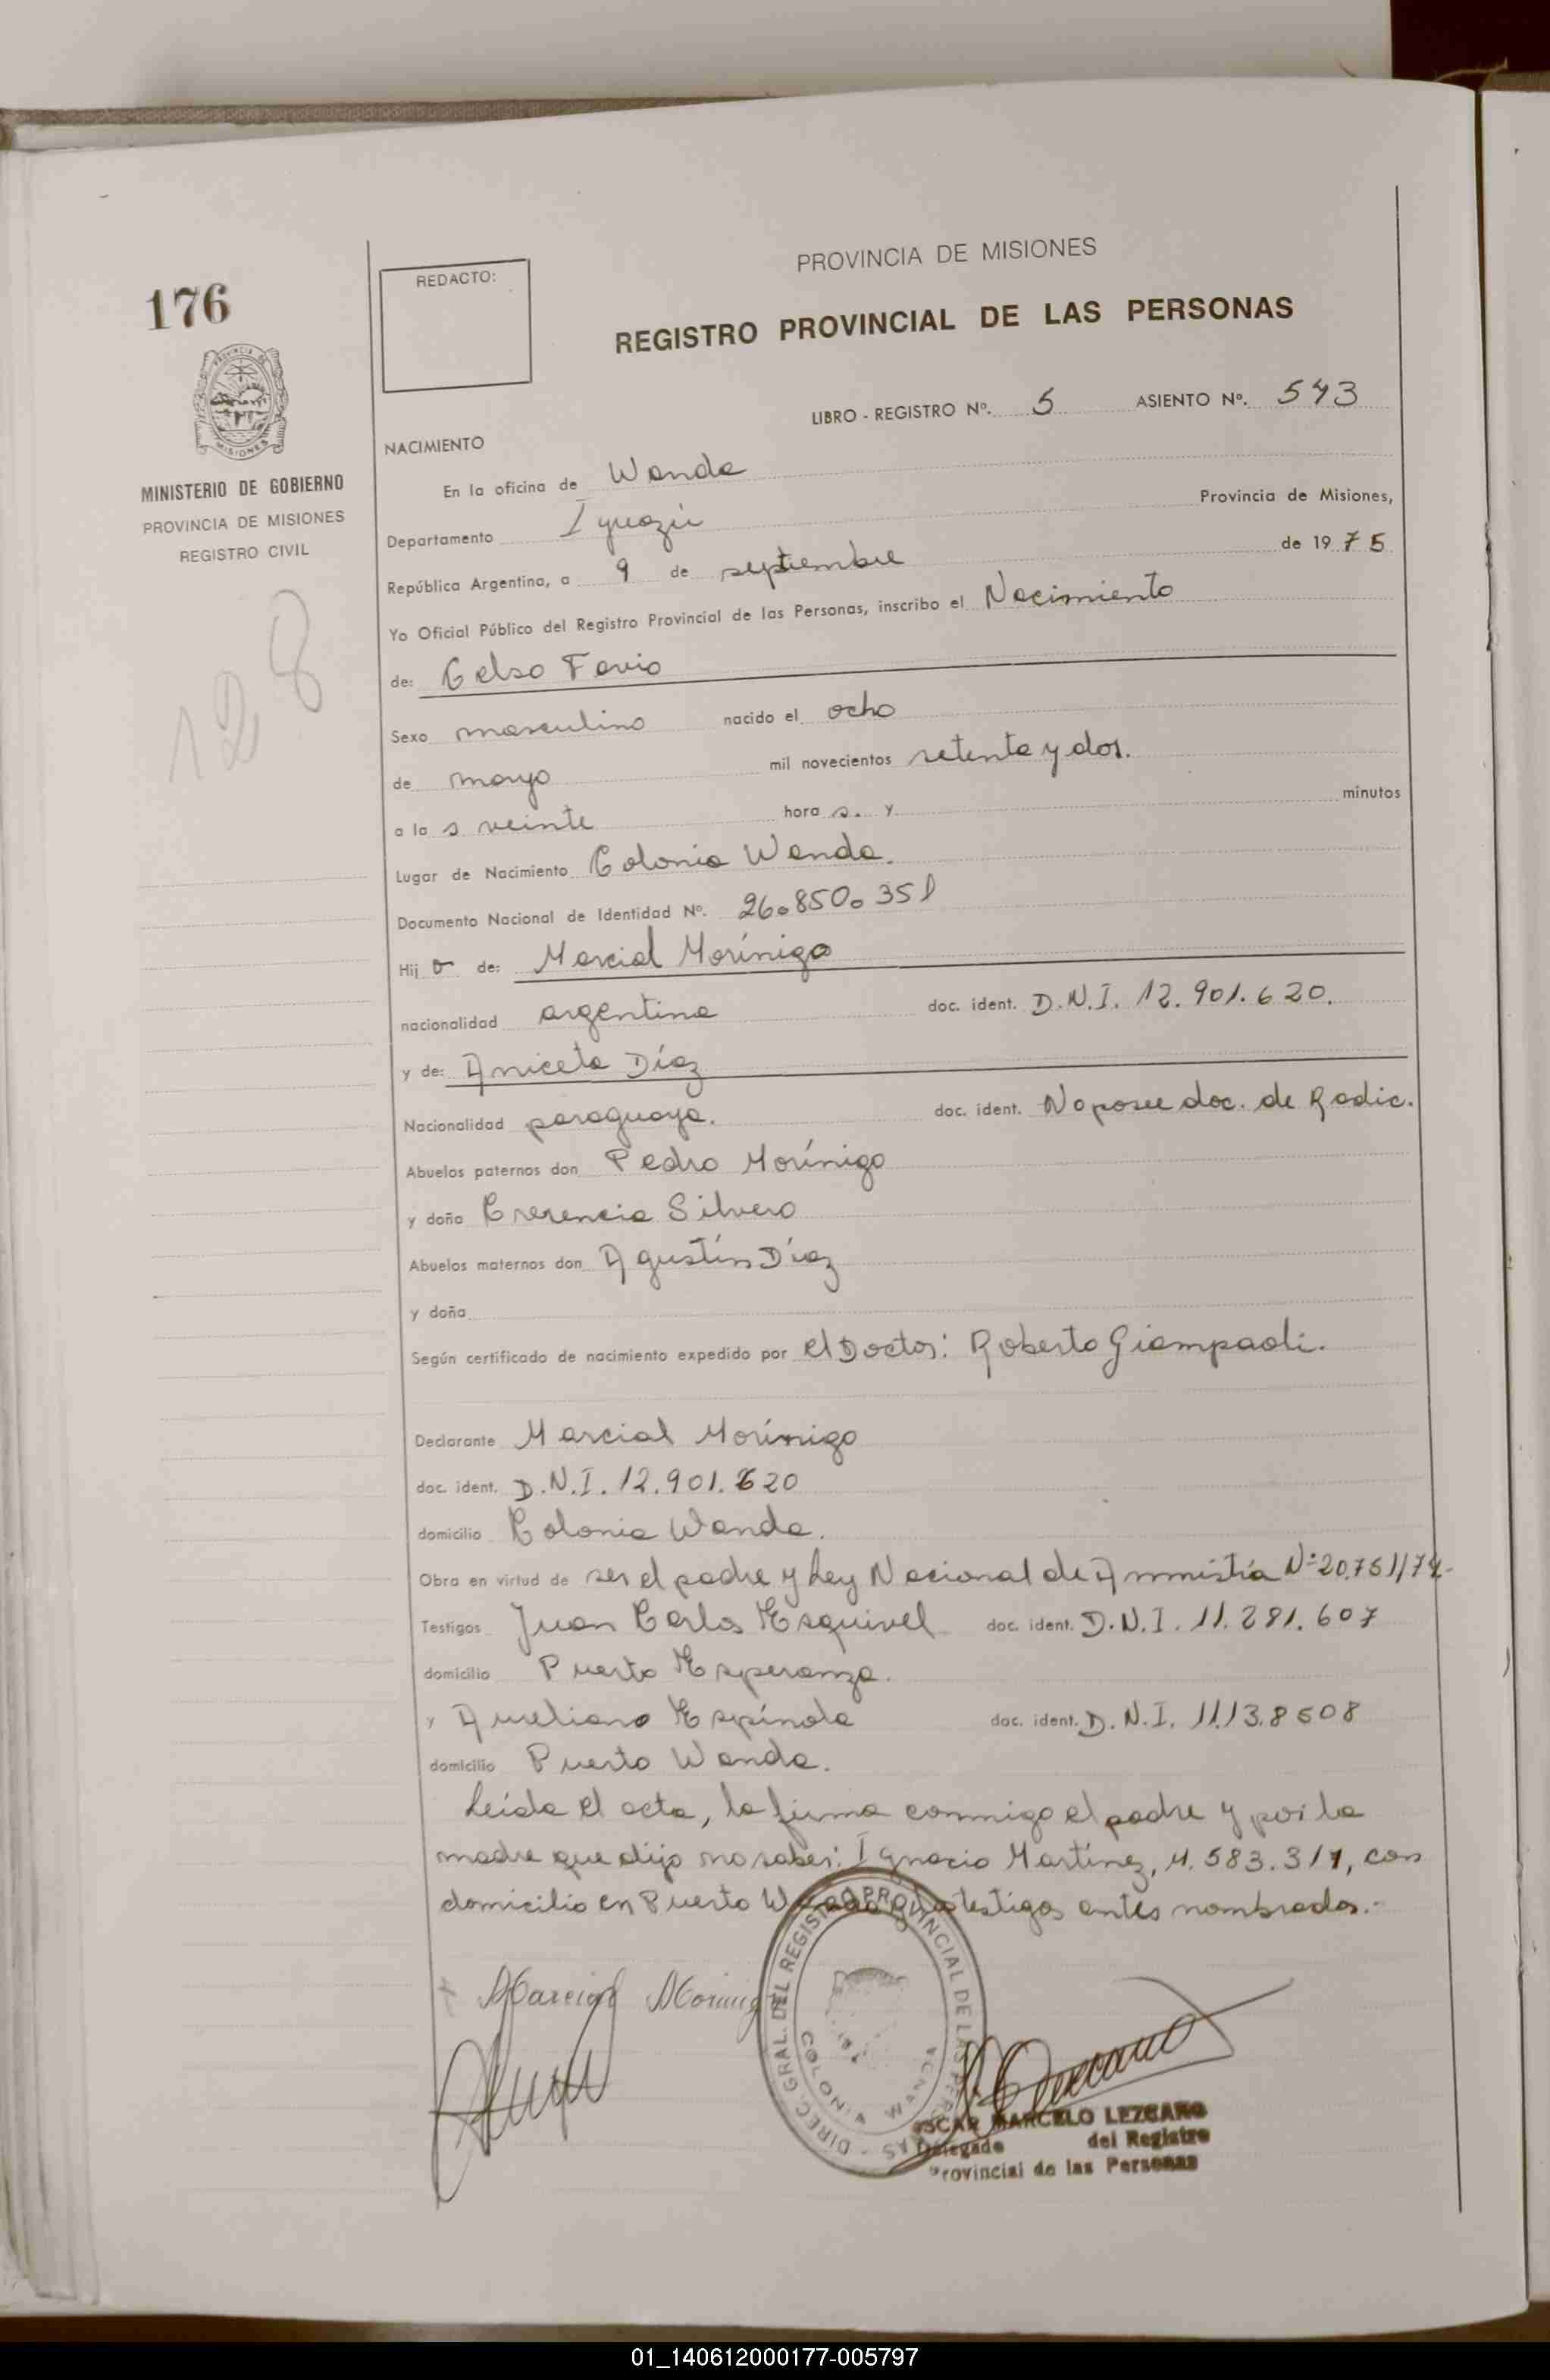 176
REDACTO:
PROVINCIA DE MISIONES
REGISTRO PROVINCIAL DE LAS PERSONAS
LIBRO - REGISTRO Nº. 5 ASIENTO Nº. 543
PROVINCIA DE MISIONES
MINISTERIO DE GOBIERNO
PROVINCIA DE MISIONES
REGISTRO CIVIL
128
NACIMIENTO
En la oficina de Wanda
Departamento Iguazú Provincia de Misiones,
República Argentina, a 9 de septiembre de 1975
Yo Oficial Público del Registro Provincial de las Personas, inscribo el Nacimiento
de: Celso Favio
Sexo masculino nacido el ocho
de mayo mil novecientos setenta y dos.
a la s veinte hora s. y minutos
Lugar de Nacimiento Colonia Wanda.
Documento Nacional de Identidad Nº. 26.850.351
Hij o de: Marcial Morínigo
nacionalidad argentina doc. ident. D.N.I. 12.901.620.
y de: Aniceta Díaz
Nacionalidad paraguaya. doc. ident. No posee doc. de Radic.
Abuelos paternos don Pedro Morínigo
y doña Cresencia Silvero
Abuelos maternos don Agustín Díaz
y doña
Según certificado de nacimiento expedido por el Doctor: Roberto Giampaoli.
Declarante Marcial Morínigo
doc. ident. D.N.I. 12.901.620
domicilio Colonia Wanda.
Obra en virtud de ser el padre y Ley Nacional de Ammistía Nº 20.751/74.-
Testigos Juan Carlos Esquivel doc. ident. D.N.I. 11.281.607
domicilio Puerto Esperanza.
y Aureliano Espínola doc. ident. D.N.I. 11.13.8508
domicilio Puerto Wanda.
Leída el acta, la firma conmigo el padre y por la
madre que dijo no saber: Ignacio Martínez, M. 583.317, con
domicilio en Puerto Wanda y los testigos antes nombrados.-
Marcial Morinigo
DIREC. GRAL. DEL REGISTRO PROVINCIAL DE LAS PERSONAS
COLONIA WANDA
OSCAR MARCELO LEZCANO
Delegado del Registro
Provincial de las Personas
01_140612000177-005797